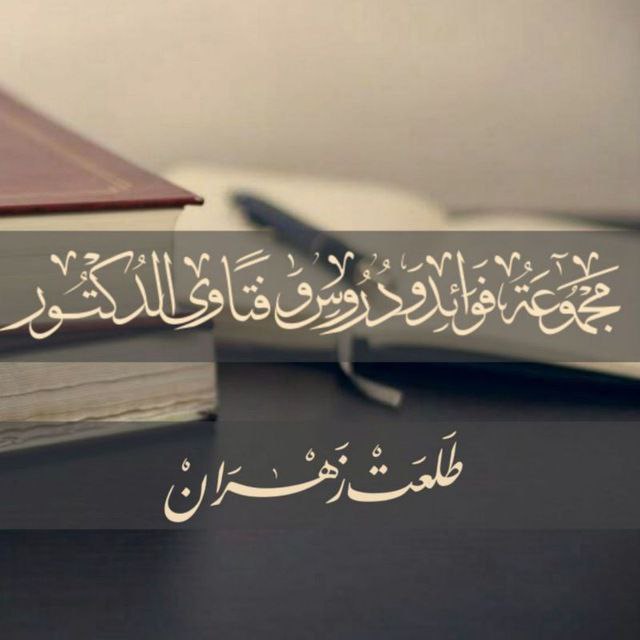 مَجْمُوعَةُ فَوَائِدُ وَ دُرُوسِ وَ فَتَاوِى الدُكْتُور
طَلعَتْ زَهْرَانْ